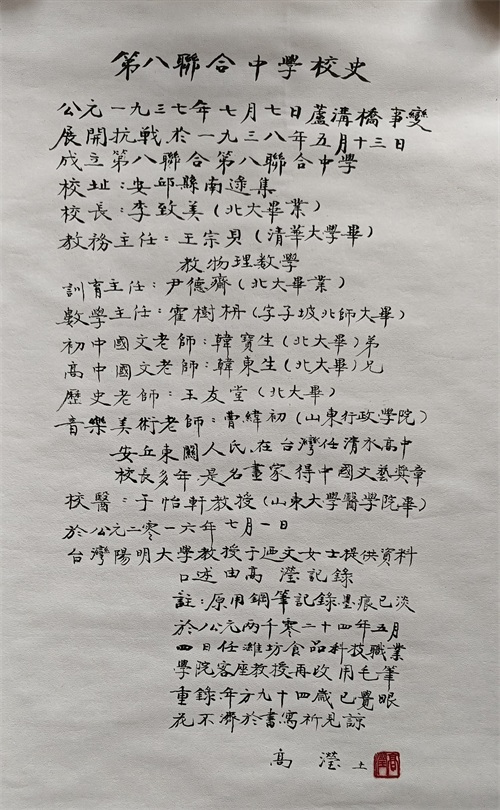 第八聯合中學校史
公元一九三七年七月七日蘆溝橋事變
展開抗戰於一九三八年五月十三日
成立第八聯合第八聯合中學
校址：安邱縣南逵集
校長：李致美（北大畢業）
教務主任：王宗貝（清華大學畢）
教物理數學
訓育主任：尹德齋（北大畢業）
數學主任：霍樹枬（字子坡北師大畢）
初中國文老師：韓寶生（北大畢）弟
高中國文老師：韓東生（北大畢）兄
歷史老師：王友堂（北大畢）
音樂美術老師：曹緯初（山東行政學院）
安丘東關人氏．在台灣任清水高中
校長多年．是名畫家得中國文藝奬章
校醫：于怡軒教授（山東大學醫學院畢）
於公元二零一六年七月一日
台灣陽明大學教授于迺文女士提供資料
口述由高瀅記錄
註：原用鋼筆記錄墨痕已淡
於公元兩千零二十四年五月
四日任濰坊食品科技職業
學院客座教授再改用毛筆
重錄．年方九十四歲已覺眼
花不濟於書寫祈見諒
高瀅